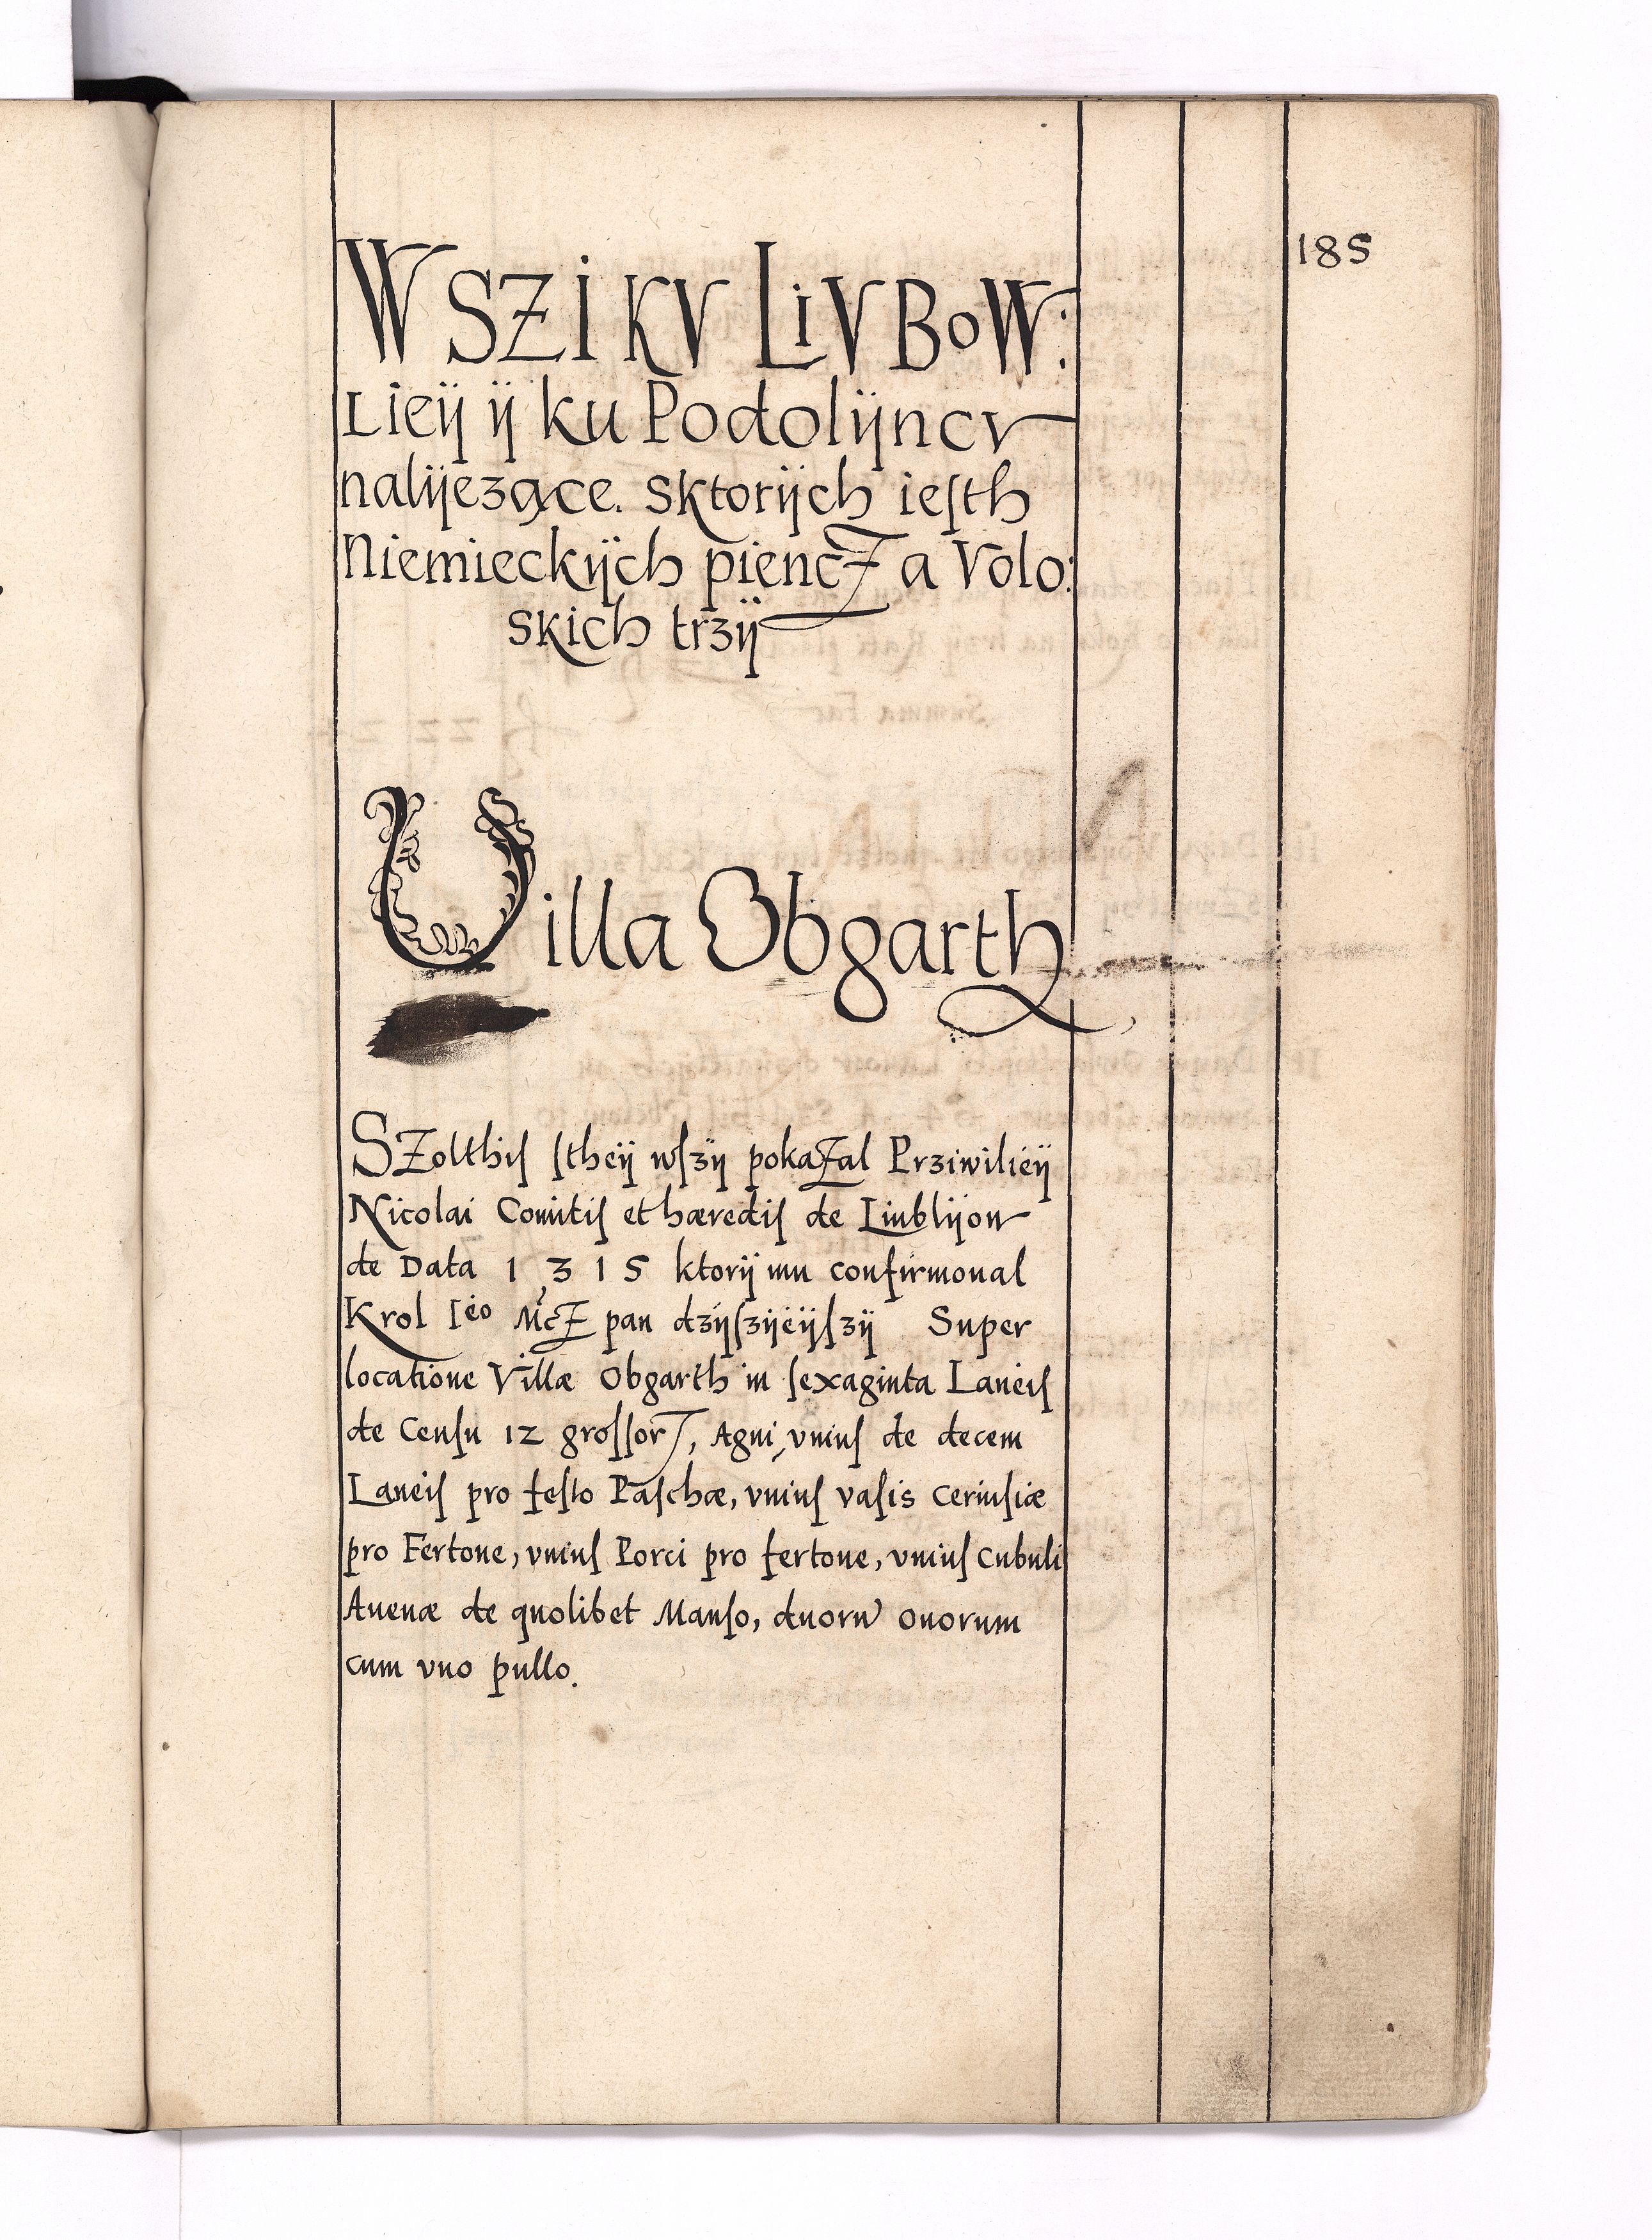 185
WSZI KV LiVBoW:
Lieÿ ÿ ku Podolÿncv
nalÿezące. sktorÿch iesth
Niemieckÿch piencZ a Volo:
skich trzÿ
Villa Obgarth
SZolthis stheÿ wszÿ pokaZal Prziwilieÿ
Nicolai Comitis et hæredis de Liublÿow
de Data 1315 ktorÿ mu confirmoual
Krol Ieo McZ pan dzÿszÿeÿszÿ Super
locatione Villæ Obgarth in sexaginta Laneis
de Censu 12 grossor, Agni vnius de decem
Laneis pro festo Paschæ, vnius vasis Ceriusiæ
pro Fertone, vnius Porci pro fertone, vnius Cubuli
Auenæ de quolibet Manso, duorū ouorum
cum vno pullo.